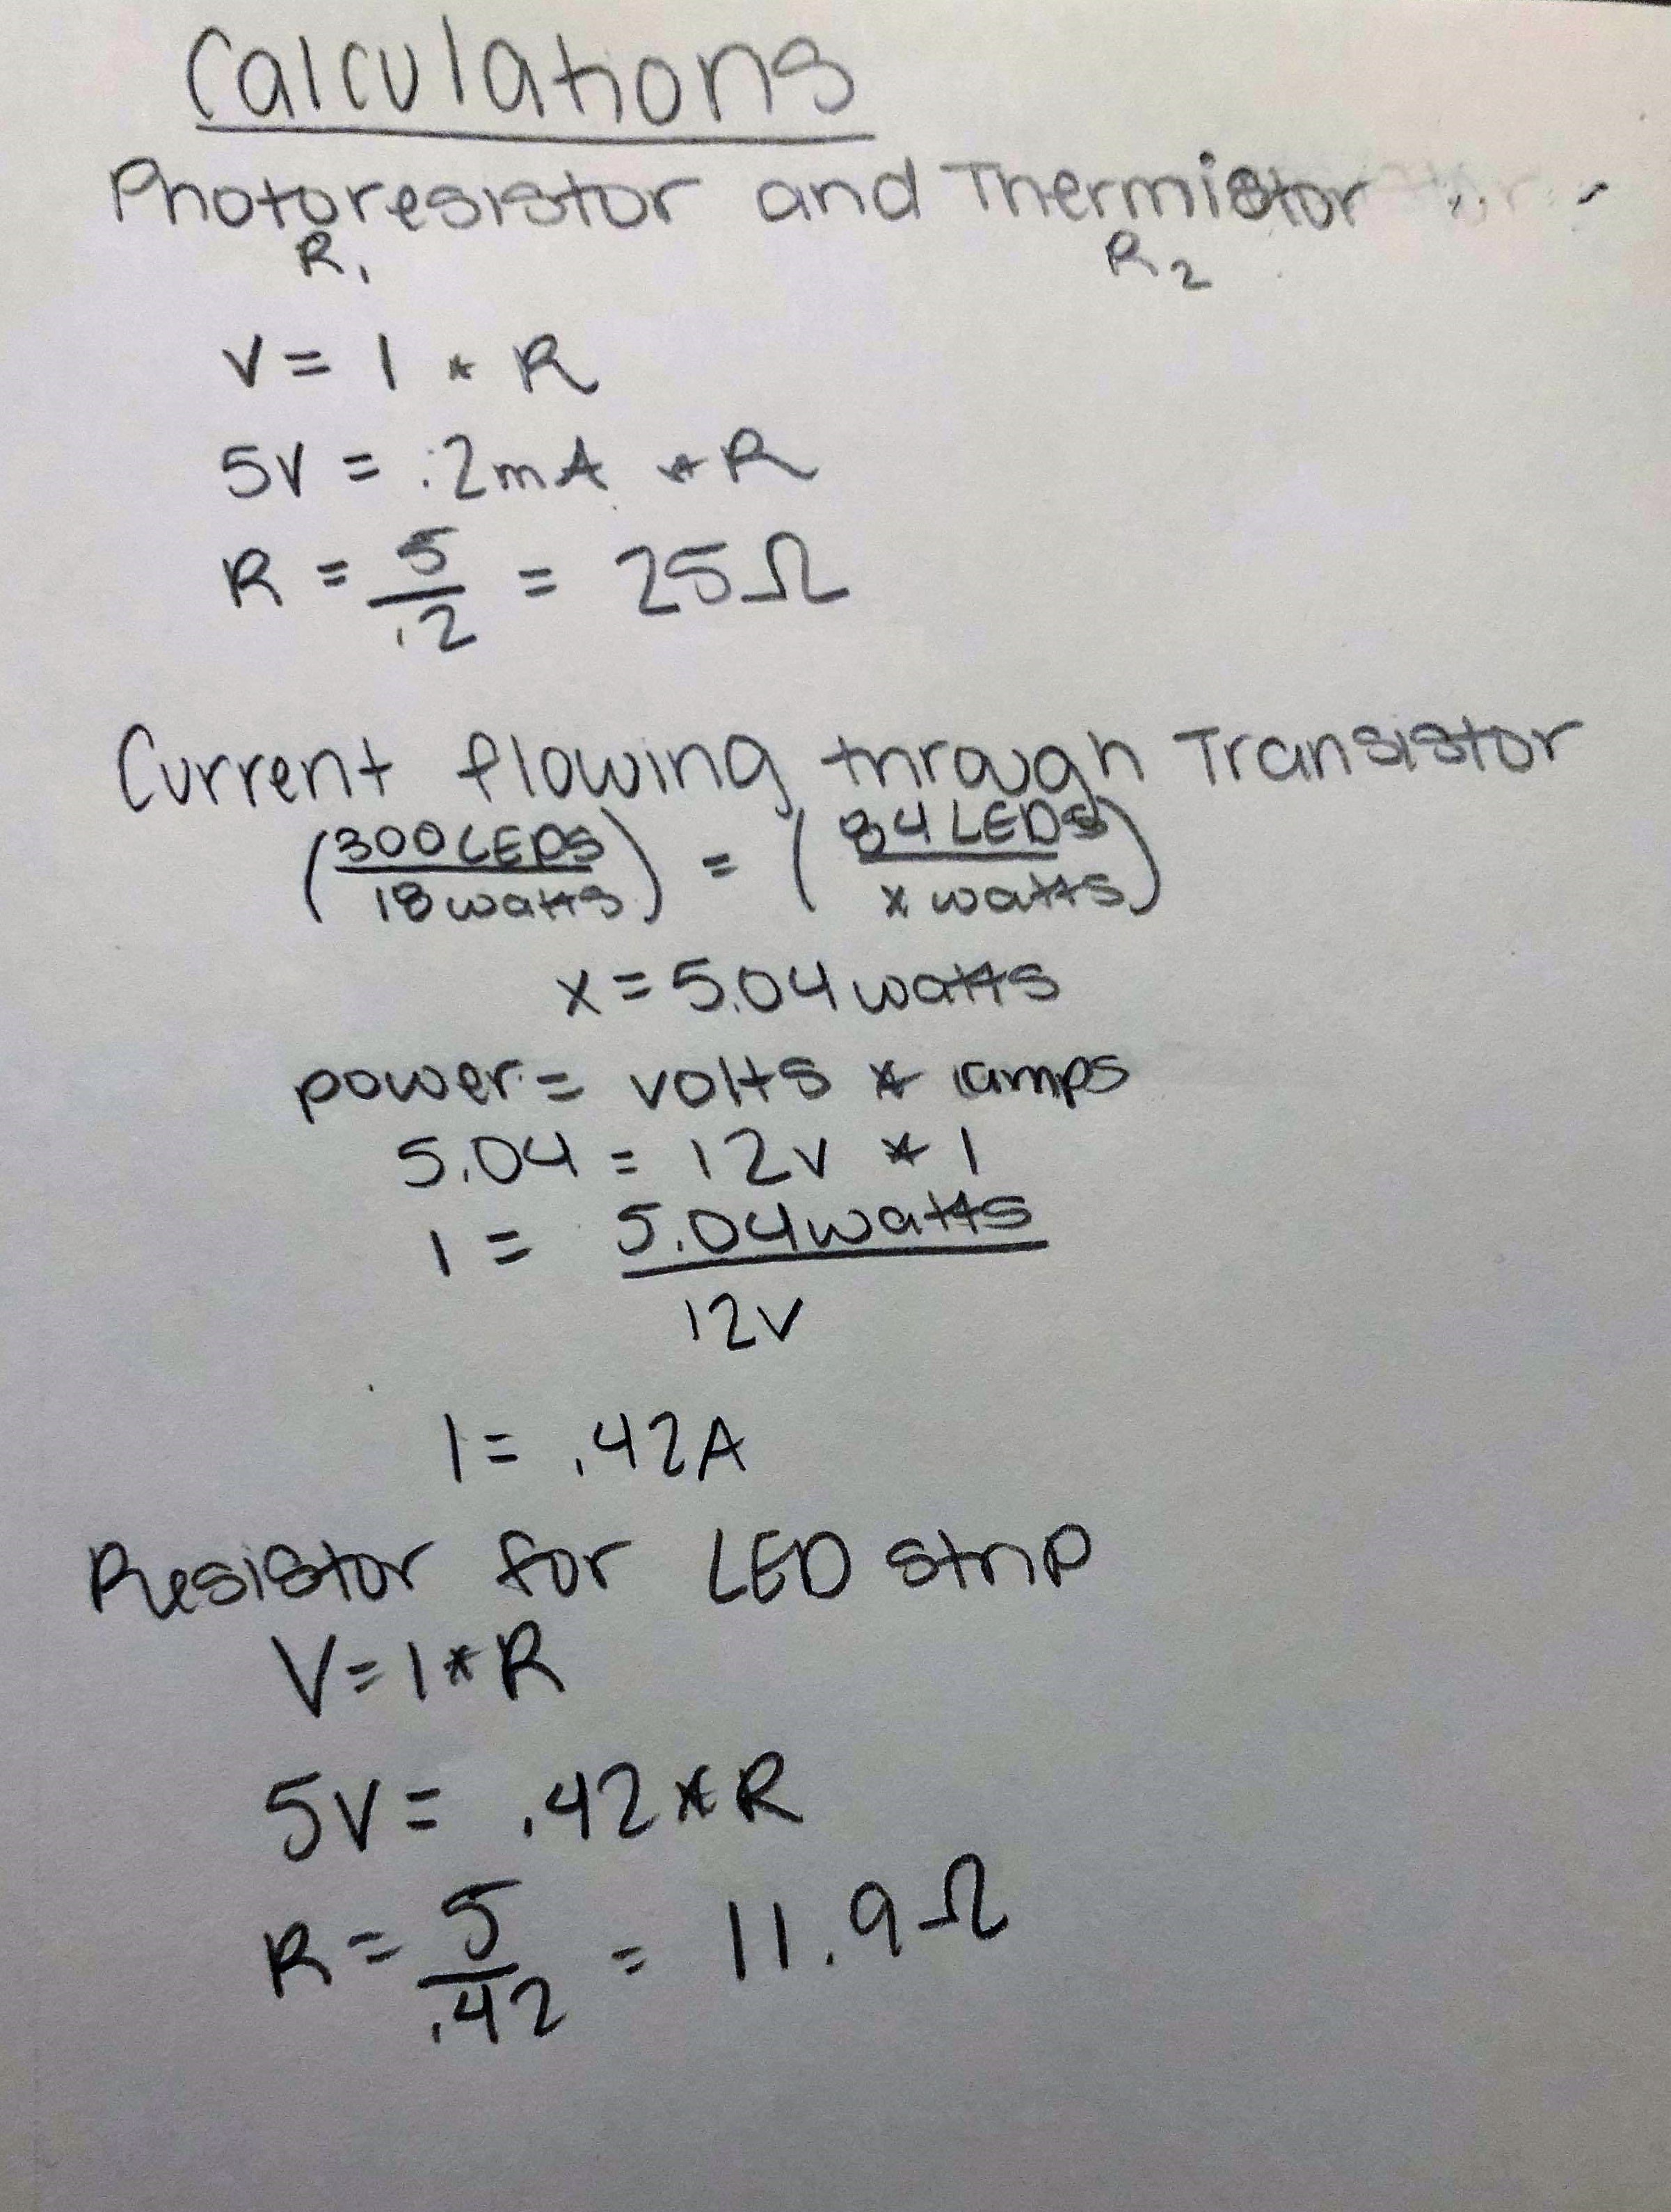 Calculations
Photoresistor and Thermistor
R1 R2
V = I * R
5V = .2mA * R
R = 5/.2 = 25Ω
Current flowing through Transistor
(300 LEDS/18 watts) = (84 LEDS/x watts)
x = 5.04 watts
power = volts * amps
5.04 = 12V * I
I = 5.04 watts/12V
I = .42A
Resistor for LED strip
V = I * R
5V = .42 * R
R = 5/.42 = 11.9Ω